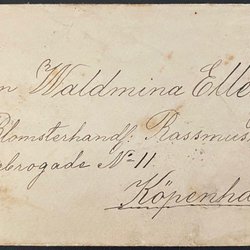 n Waldmina Elle
Blomsterhandl: Rassmus
ebrogade No 11
Köpenha